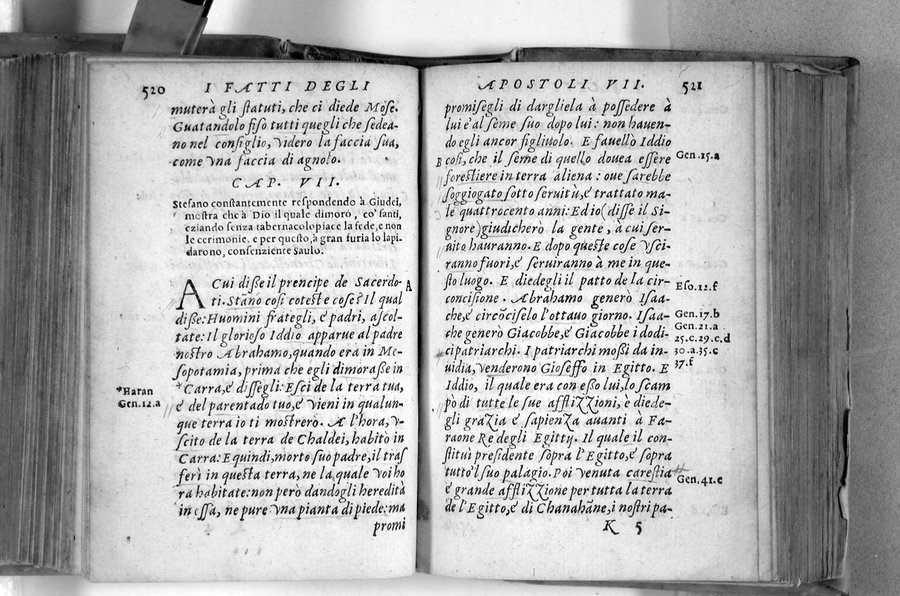 520 I FATTI DEGLI
muterà gli statuti, che ci diede Mose.
Guatandolo fiso tutti quegli che sedea-
no nel consiglio, videro la faccia sua,
come vna faccia di agnolo.
CAP. VII.
Stefano constantemente respondendo à Giudei,
mostra che à Dio il quale dimorò, co' santi,
eziando senza tabernacolo piace la fede, e non
le cerimonie. e per questo, à gran furia lo lapi-
darono, consenziente Saulo.
A Cui disse il prencipe de Sacerdo- A
ti. Stano cosi coteste cose? Il qual
disse: Huomini frategli, e padri, ascol-
tate: Il glorioso Iddio apparue al padre
nostro Abrahamo, quando era in Me-
sopotamia, prima che egli dimorasse in
*Haran
Gen.12.a
*Carra, è dissegli: Esci de la terra tua,
è del parentado tuo, è vieni in qualun-
que terra io ti mostrerò. A l'hora, v-
scito de la terra de Chaldei, habitò in
Carra: E quindi, morto suo padre, il tras
ferì in questa terra, ne la quale voi ho
ra habitate: non però dandogli heredità
in essa, ne pure vna pianta di piede: ma
promi
APOSTOLI VII. 521
promisegli di dargliela à possedere à
lui è al seme suo dopo lui: non hauen-
do egli ancor figliuolo. E fauellò Iddio
B cosi, che il seme di quello douea essere Gen.15.a
forestiere in terra aliena: oue sarebbe
soggiogato sotto seruitù, è trattato ma-
le quattrocento anni: Ed io (disse il Si-
gnore) giudicherò la gente, à cui ser-
uito hauranno. E dopo queste cose vsci-
ranno fuori, è seruiranno à me in que-
sto luogo. E diedegli il patto de la cir- Eso.12.f
concisione. Abrahamo generò Isaa-
che, è circōciselo l'ottauo giorno. Isaa- Gen.17.b
che generò Giacobbe, è Giacobbe i dodi- Gen.21.a
cipatriarchi. I patriarchi mossi da in- 25.c.29.c.d
uidia, venderono Gioseffo in Egitto. E 30.a.35.c
Iddio, il quale era con esso lui, lo scam 37.f
pò di tutte le sue afflizzioni, è diede-
gli grazia è sapienza auanti à Fa-
raone Re degli Egitty. Il quale il con-
stituì presidente sopra l'Egitto, è sopra
tutto'l suo palagio. Poi venuta carestia
è grande afflizzione per tutta la terra Gen.41.e
de l'Egitto, è di Chanahāne, i nostri pa-
K 5